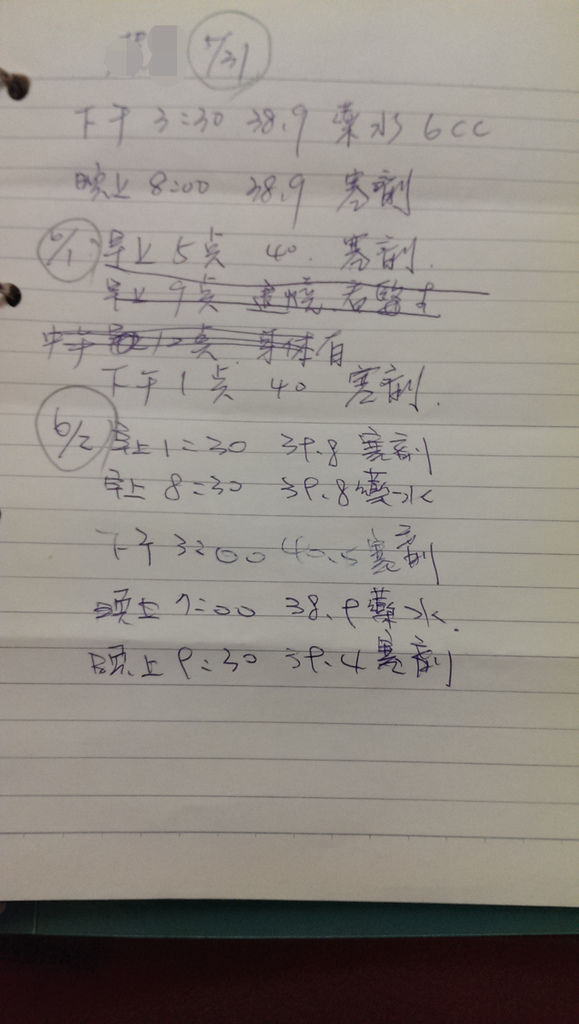 5/31
下午 3:30 38.9 藥水 6CC
晚上 8:00 38.9 塞劑
6/1 早上 5点 40. 塞劑.
早上 9点
中午 12点 身体有
下午 1点 40 塞劑.
6/2 早上 1:30 39.8 塞劑
早上 8:30 39.8 藥水
下午 3:00 40.5 塞劑
晚上 7:00 38.9 藥水.
晚上 9:30 39.4 塞劑